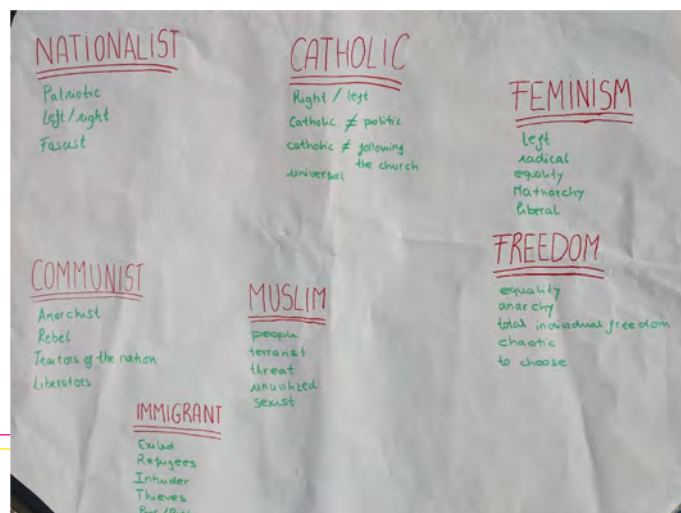 NATIONALIST
Patriotic
Left/right
Fascist
CATHOLIC
Right / left
Catholic ≠ politic
catholic ≠ following
the church
universal
FEMINISM
left
radical
equality
Matriarchy
liberal
COMMUNIST
Anarchist
Rebel
Traitors of the nation
Liberators
MUSLIM
people
terrorist
threat
uncivilized
sexist
FREEDOM
equality
anarchy
total individual freedom
chaotic
to choose
IMMIGRANT
Exiled
Refugees
Intruder
Thieves